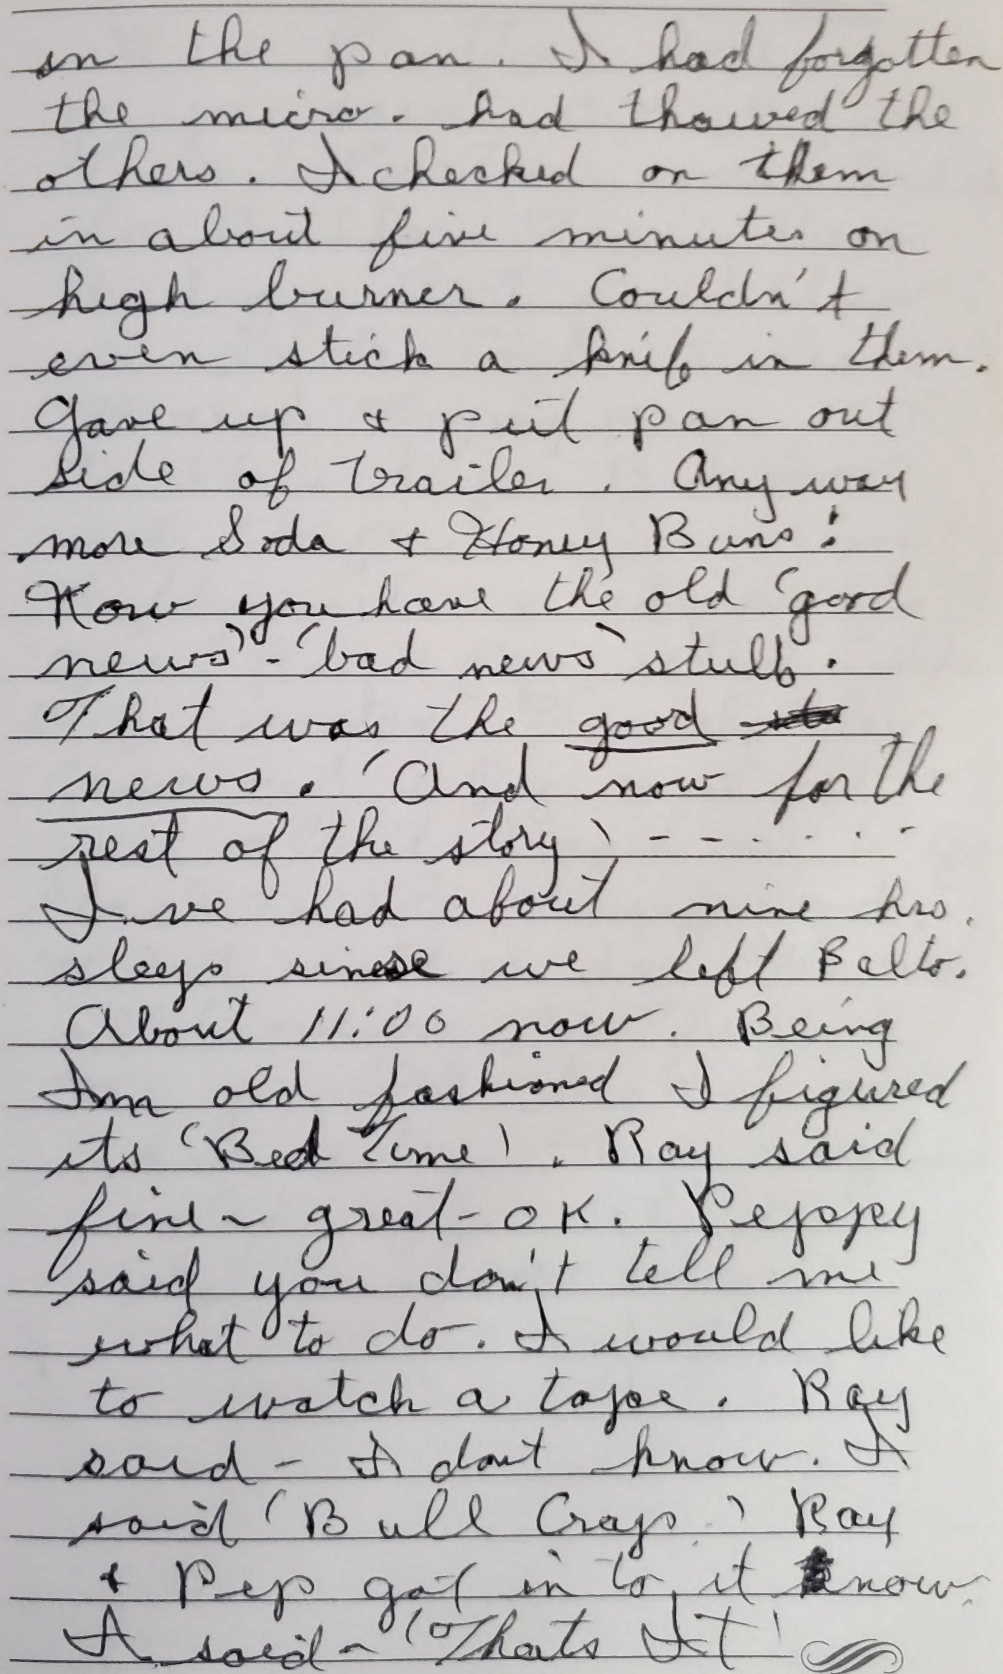 in the pan. I had forgotten
the micro. had thawed the
others. I checked on them
in about five minutes on
high burner. Couldn't
even stick a knif in them.
Gave up & put pan out
side of trailer. Any way
more Soda & Honey Buns!
Now you have the old 'good
news'-'bad news' stuff.
That was the good
news. 'And now for the
rest of the story' - - - - - -
I've had about nine hrs.
sleep since we left Balto.
About 11:00 now. Being
Im old fashioned I figured
its 'Bed Time'. Ray said
fine - great - OK. Peppy
said you don't tell me
what to do. I would like
to watch a tape. Ray
said - I dont know. I
said 'Bull Crap.' Ray
& Pep got in to it now.
I said - 'Thats It'